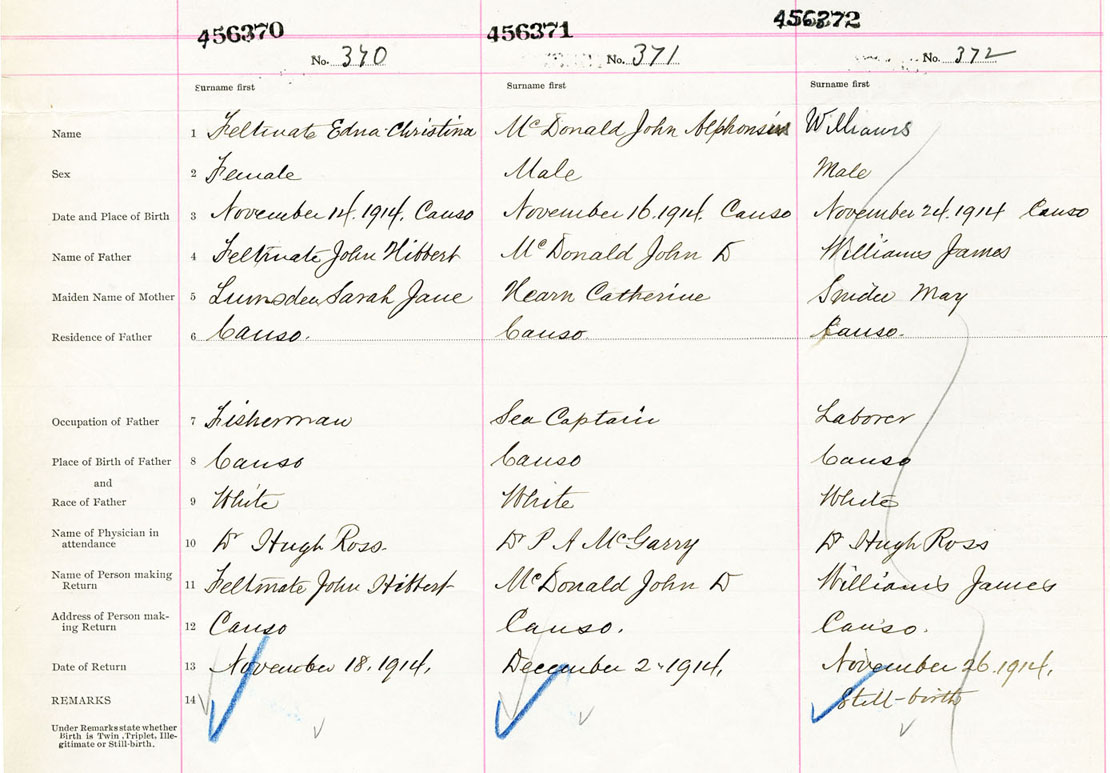 456370 456371 456372
No. 370 No. 371 No. 372
Surname first Surname first Surname first
Name 1 Feltmate Edna Christina McDonald John Alphonsius Williams
Sex 2 Female Male Male
Date and Place of Birth 3 November 14. 1914. Canso November 16. 1914. Canso November 24. 1914 Canso
Name of Father 4 Feltmate John Hibbert McDonald John D Williams James
Maiden Name of Mother 5 Lumsden, Sarah Jane Hearn Catherine Snider May
Residence of Father 6 Canso. Canso. Canso.
Occupation of Father 7 Fisherman Sea Captain Laborer
Place of Birth of Father 8 Canso Canso Canso
and
Race of Father 9 White White White
Name of Physician in
attendance 10 Dr Hugh Ross. Dr P A McGarry Dr Hugh Ross
Name of Person making
Return 11 Feltmate John Hibbert McDonald John D Williams James
Address of Person mak-
ing Return 12 Canso Canso. Canso.
Date of Return 13 November 18. 1914. December 2. 1914. November 26. 1914.
REMARKS 14 Still-birth
Under Remarks state whether
Birth is Twin, Triplet, Ille-
gitimate or Still-birth.